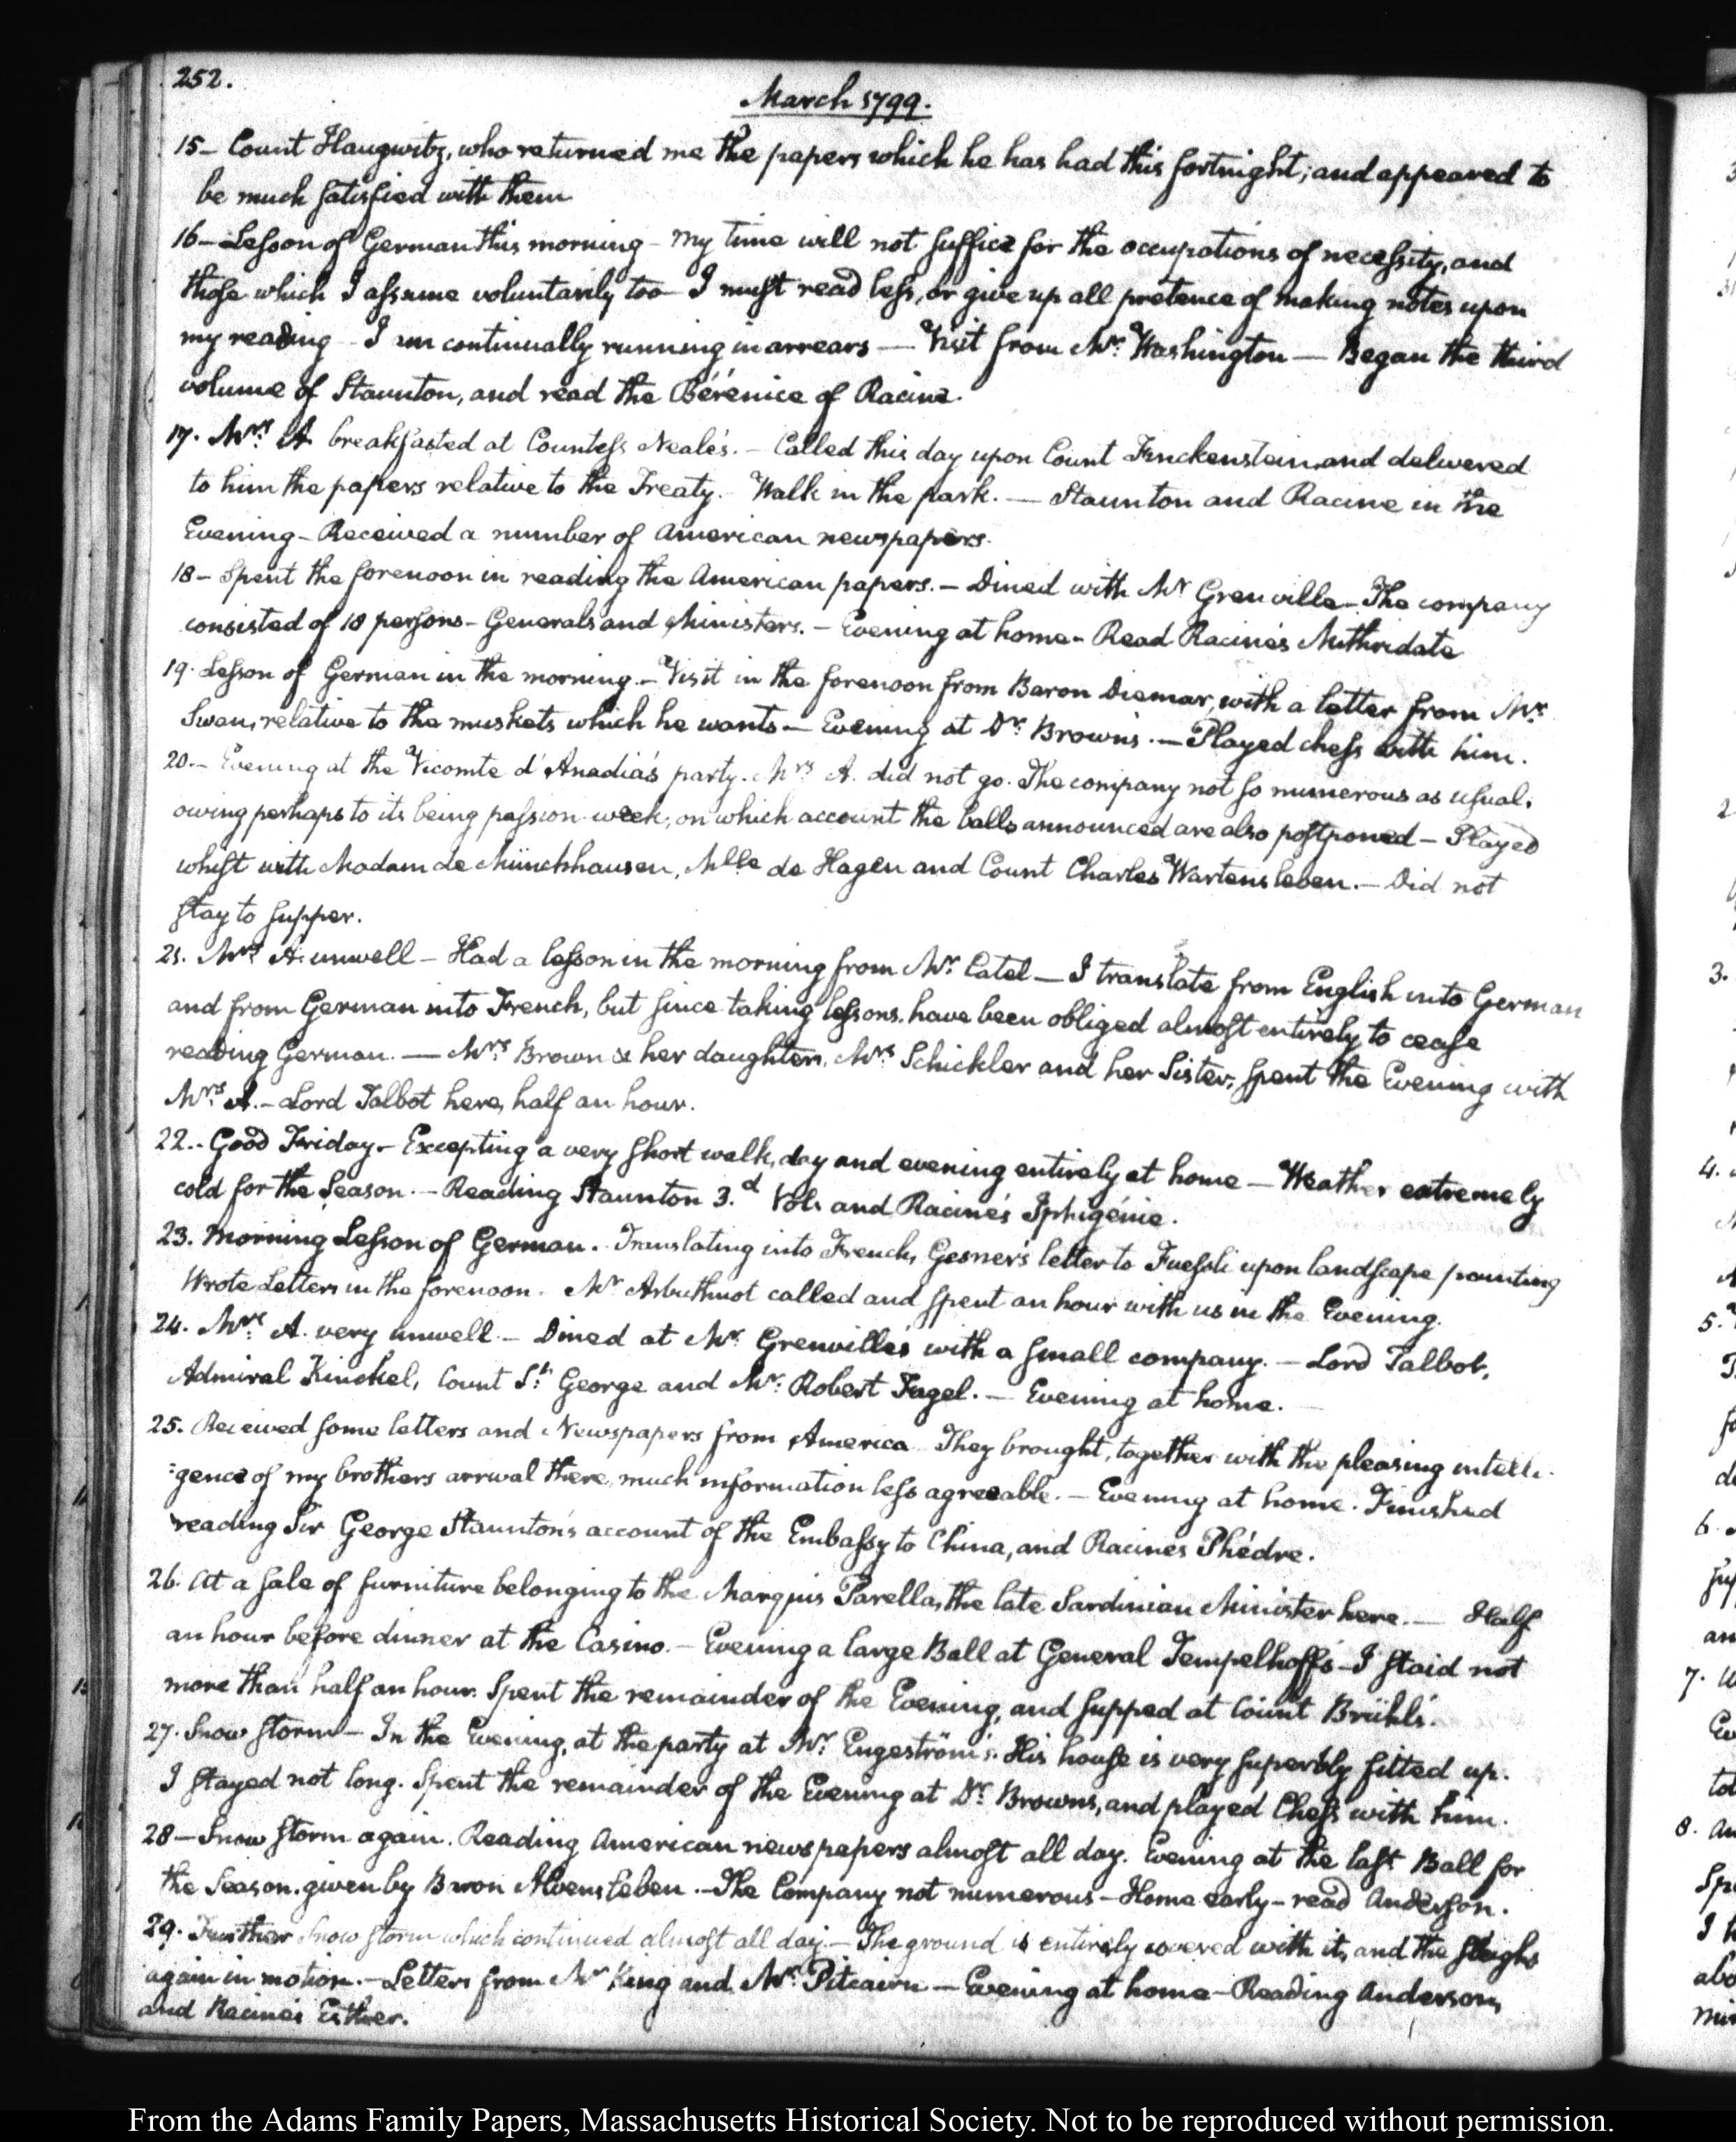 252.
March 1799.
15— Count Haugwitz, who returned me the papers which he has had this fortnight; and appeared to
be much satisfied with them
16—Lesson of German this morning — My time will not suffice for the occupations of necessity, and
those which I assume voluntarily too — I must read less, or give up all pretence of making notes upon
my reading — I am continually running in arrears — Visit from Mr. Washington — Began the third
volume of Staunton, and read the Bérénice of Racine.
17. Mrs. A breakfasted at Countess Neale's. — Called this day upon Count Finckenstein and delivered
to him the papers relative to the Treaty. — Walk in the park. — Staunton and Racine in the
Evening — Received a number of American newspapers.
18 — Spent the forenoon in reading the American papers. — Dined with Mr Grenville — The company
consisted of 18 persons — Generals and Ministers. — Evening at home — Read Racine's Mithridate
19. Lesson of German in the morning. — Visit in the forenoon from Baron Diemar, with a letter from Mr.
Swan, relative to the muskets which he wants — Evening at Dr. Brown's. — Played chess with him.
20. — Evening at the Vicomte d'Anadia's party. Mrs A. did not go. The company not so numerous as usual.
owing perhaps to its being passion-week; on which account the balls announced are also postponed — Played
whist with Madam de Münchhausen, Mlle de Hagen and Count Charles Wartensleben. — Did not
stay to supper.
21. Mrs. A. unwell — Had a lesson in the morning from Mr. Catel — I translate from English into German
and from German into French, but since taking lessons, have been obliged almost entirely to cease
reading German. — Mrs. Brown & her daughters, Mrs. Schickler and her Sister, spent the Evening with
Mrs. A. — Lord Talbot here, half an hour.
22. Good Friday — Excepting a very short walk, day and evening entirely at home — Weather extremely
cold for the Season. — Reading Staunton 3.d Vol. and Racine's Iphigénie.
23. Morning Lesson of German. Translating into French, Gesner's letter to Fuessli upon landscape painting
Wrote Letters in the forenoon. Mr Arbuthnot called and spent an hour with us in the Evening.
24. Mrs. A. very unwell. — Dined at Mr. Grenville's with a small company. — Lord Talbot,
Admiral Kinckel, Count St. George and Mr. Robert Fagel. — Evening at home.
25. Received some letters and Newspapers from America They brought, together with the pleasing intelli-
gence of my brothers arrival there, much information less agreeable. — Evening at home. Finished
reading Sir George Staunton's account of the Embassy to China, and Racines Phédre.
26. At a sale of furniture belonging to the Marquis Parella, the late Sardinian Minister here. — Half
an hour before dinner at the Casino. — Evening a large Ball at General Tempelhoff's — I staid not
more than half an hour. Spent the remainder of the Evening, and supped at Count Brühl's.
27. Snow storm — In the Evening, at the party at Mr. Engeström's. His house is very superbly fitted up.
I stayed not long. Spent the remainder of the Evening at Dr. Browns, and played Chess with him.
28 — Snow storm again. Reading American newspapers almost all day. Evening at the last Ball for
the Season, given by Baron Alvensleben. — The Company not numerous — Home early — read Anderson.
29. Further Snow storm which continued almost all day. — The ground is entirely covered with it, and the sleighs
again in motion. — Letters from Mr King and Mr. Pitcairn — Evening at home — Reading Anderson,
and Racine's Esther.
From the Adams Family Papers, Massachusetts Historical Society. Not to be reproduced without permission.